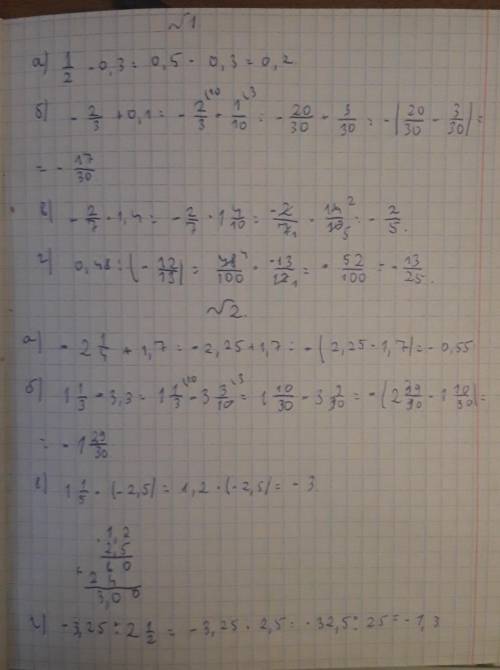 √1
а) 1/2 - 0,3 = 0,5 - 0,3 = 0,2
б) - 2/3 + 0,1 = - 2/3 \10 + 1/10 \3 = - 20/30 + 3/30 = -(20/30 - 3/30) =
= - 17/30
в) - 2/7 · 1,4 = - 2/7 · 1 4/10 = -2/7 1 · 14 2/10 5 = - 2/5.
г) 0,48 : (- 12/13) = 48 4/100 · -13/12 1 = - 52/100 = - 13/25.
√2.
а) - 2 1/4 + 1,7 = - 2,25 + 1,7 = -(2,25 - 1,7) = - 0,55
б) 1 1/3 - 3,3 = 1 1/3 \10 - 3 3/10 \3 = 1 10/30 - 3 9/30 = -(2 39/30 - 1 10/30) =
= - 1 29/30
в) 1 1/5 · (-2,5) = 1,2 · (-2,5) = - 3
1,2
2,5
6 0
+ 2 4
3,0 0
г) -3,25 : 2 1/2 = - 3,25 : 2,5 = -32,5 : 25 = - 1,3